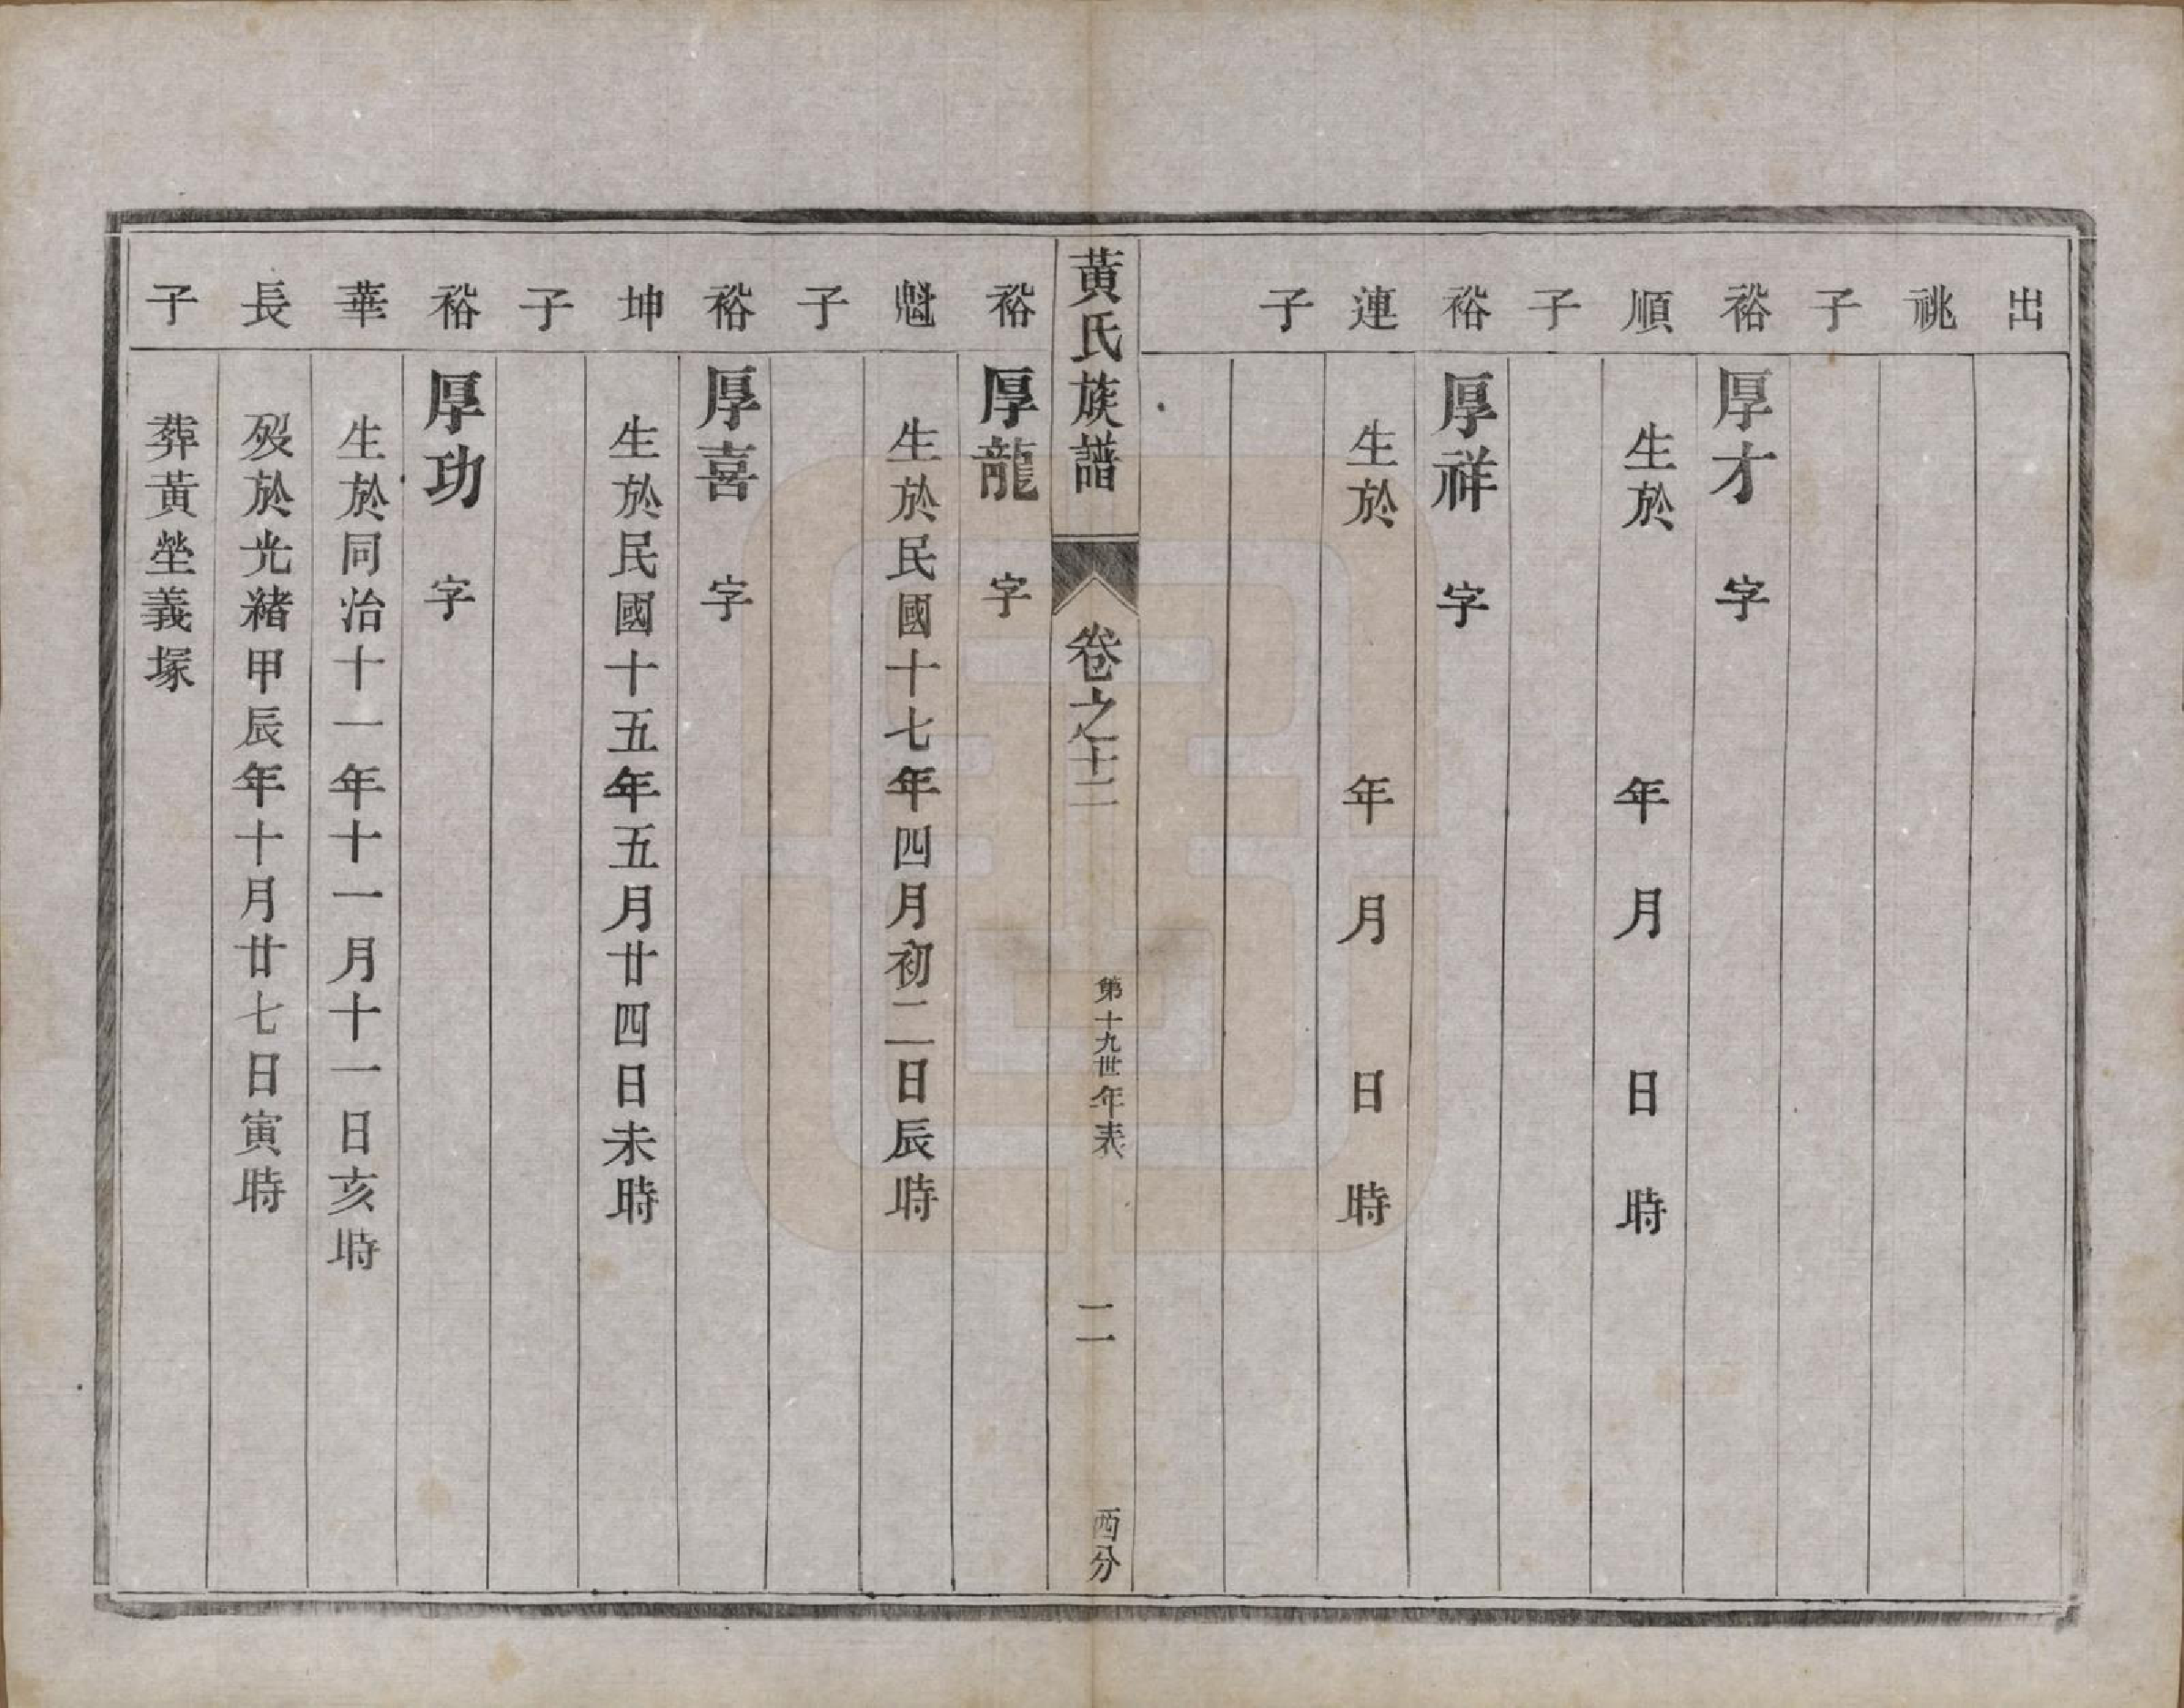 出
祧
子
裕 厚才 字
順 生於 年 月 日 時
子
裕 厚祥 字
連 生於 年 月 日 時
子
黃氏族譜 卷之十二 第十九世年表 二 西分
裕 厚龍 字
魁 生於民國十七年四月初二日辰時
子
裕 厚喜 字
坤 生於民國十五年五月廿四日未時
子
裕 厚功 字
華 生於同治十一年十一月十一日亥時
長 歿於光緒甲辰年十月廿七日寅時
子 葬黃塋義塚